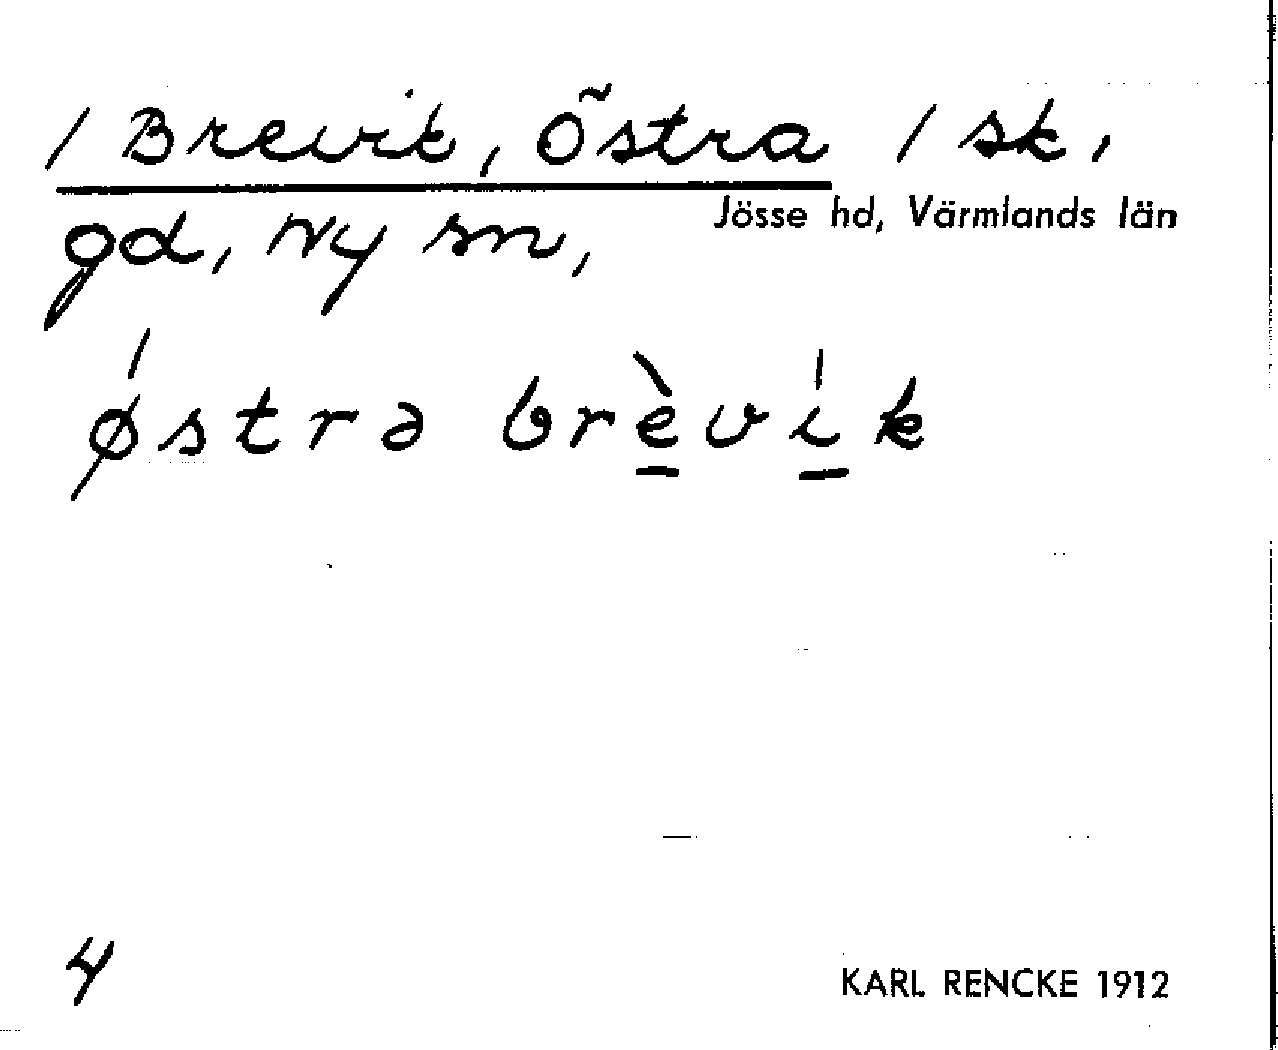 / Brevik, Östra / sk,
gd, Ny sn, Jösse hd, Värmlands län
ǿstrə brèvík
4 KARL RENCKE 1912